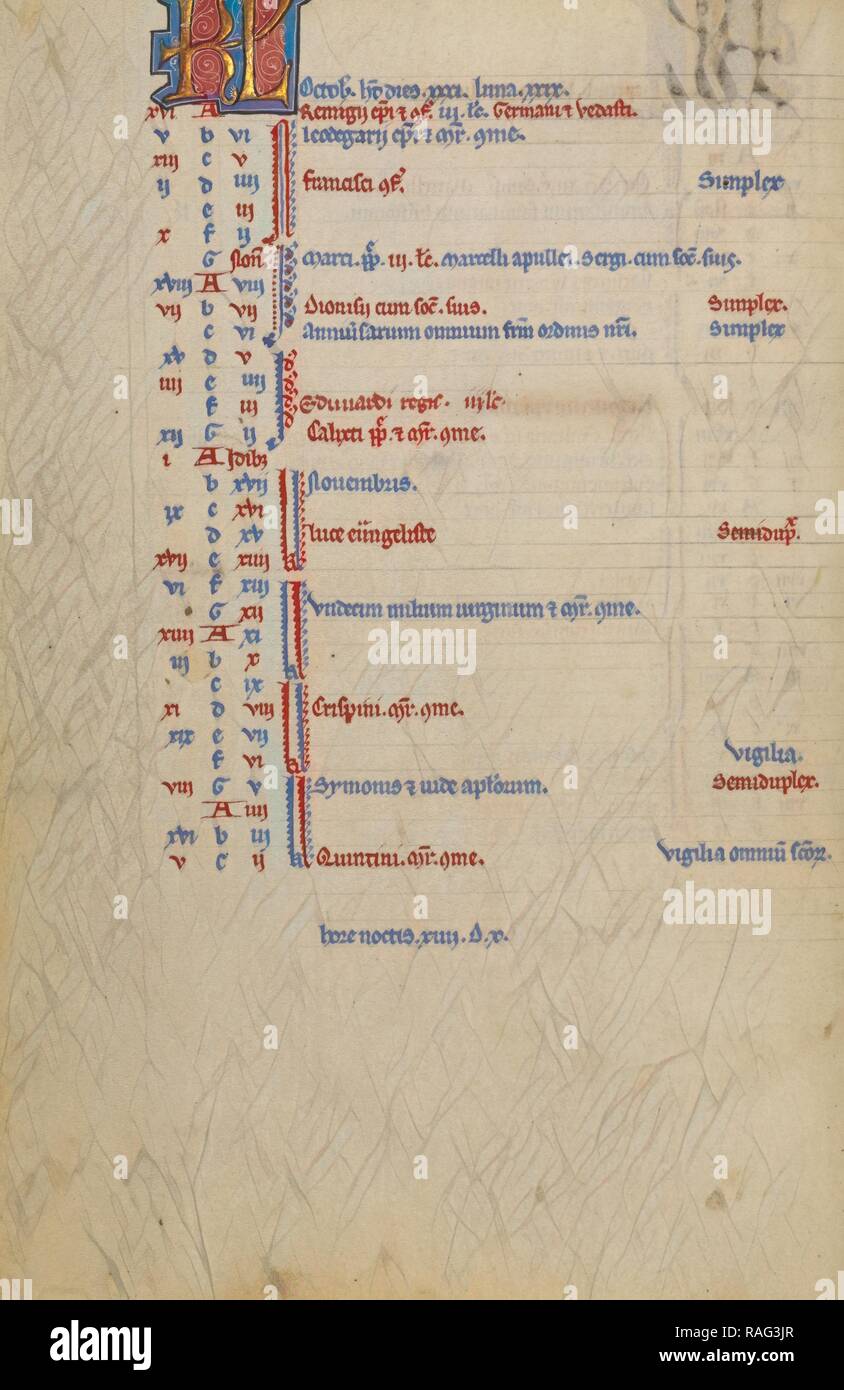 KL Octob. ħt dies. xxxi. luna. xxix.
xvi A Remigii ep̄i ⁊ ꝯf. iij. lc̄. Germani ⁊ vedasti.
v b vi leodegarij ep̄i. ⁊ mr̄. ꝯme.
xiii c v
ij d iiij francisci ꝯf. Simplex
e iij
x f ij
G Non̄ Marci. pp̄. iij. lc̄. Marcelli apullei. Sergi. cum soc̄. suis.
xviii A viij
vij b vij Dionisij cum soc̄. suis. Simplex.
c vi Anniu̅sarium omnium frm̄ ordinis nr̄i. Simplex
xv d v
iiij e iiij
f iij Edwardi regis. iij lc̄
xij G ij Calixti pp̄. ⁊ mr̄. ꝯme.
i A Idibꝫ
b xvij Nouembris.
ix c xvi
d xv luce eūngeliste Semidup̄x.
xvij e xiiij
vi f xiij
G xij Vndecim milium uirginum ⁊ mr̄. ꝯme.
xiiij A xi
iij b x
c ix
xi d viij Crispini. mr̄. ꝯme.
xix e vij
f vi Vigilia.
viij G v Symonis ⁊ iude apl̄orum. Semiduplex.
A iiij
xvi b iij
v c ij Quintini. mr̄. ꝯme. Vigilia omniū sc̄oꝝ.
hore noctis. xiiij. D. x.
alamy
Image ID: RAG3JR
www.alamy.com